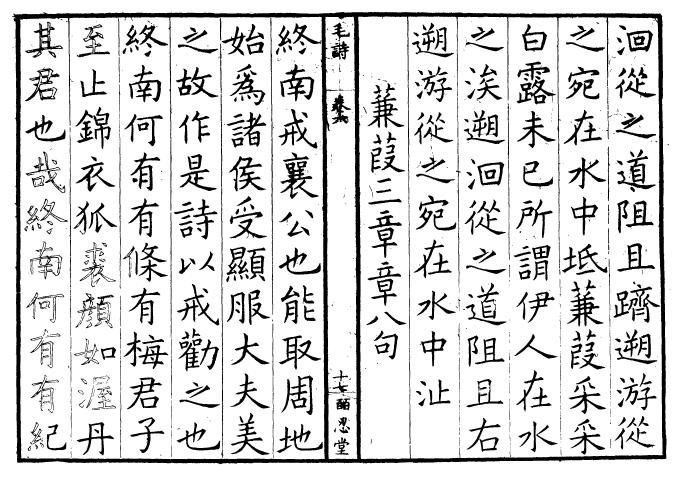 洄從之道阻且躋遡游從
之宛在水中坻蒹葭采采
白露未已所謂伊人在水
之涘遡洄從之道阻且右
遡游從之宛在水中沚
蒹葭三章章八句
毛詩
卷六
十七
思堂
終南戒襄公也能取周地
始爲諸侯受顯服大夫美
之故作是詩以戒勸之也
終南何有有條有梅君子
至止錦衣狐裘顏如渥丹
其君也哉終南何有有紀